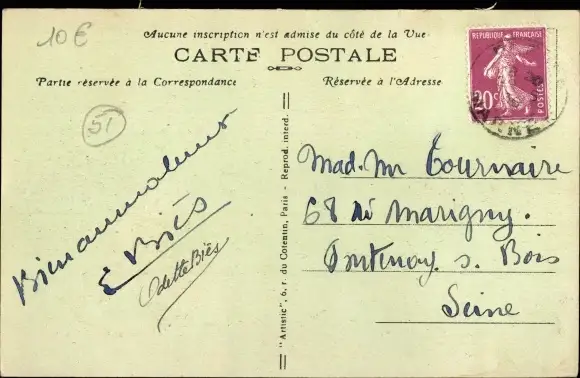 10€
Aucune inscription n'est admise du côté de la Vue
CARTE POSTALE
Partie réservée à la Correspondance
Réservée à l'Adresse
REPUBLIQUE FRANÇAISE
20c
POSTES
MARNE
51
Bien amicalement
E Biès
Odette Biès
"Artistic", 6, r. du Cotentin, Paris - Reprod. interd.
Mad. Mr Tournaire
68 Marigny.
Fontenay. s. Bois
Seine